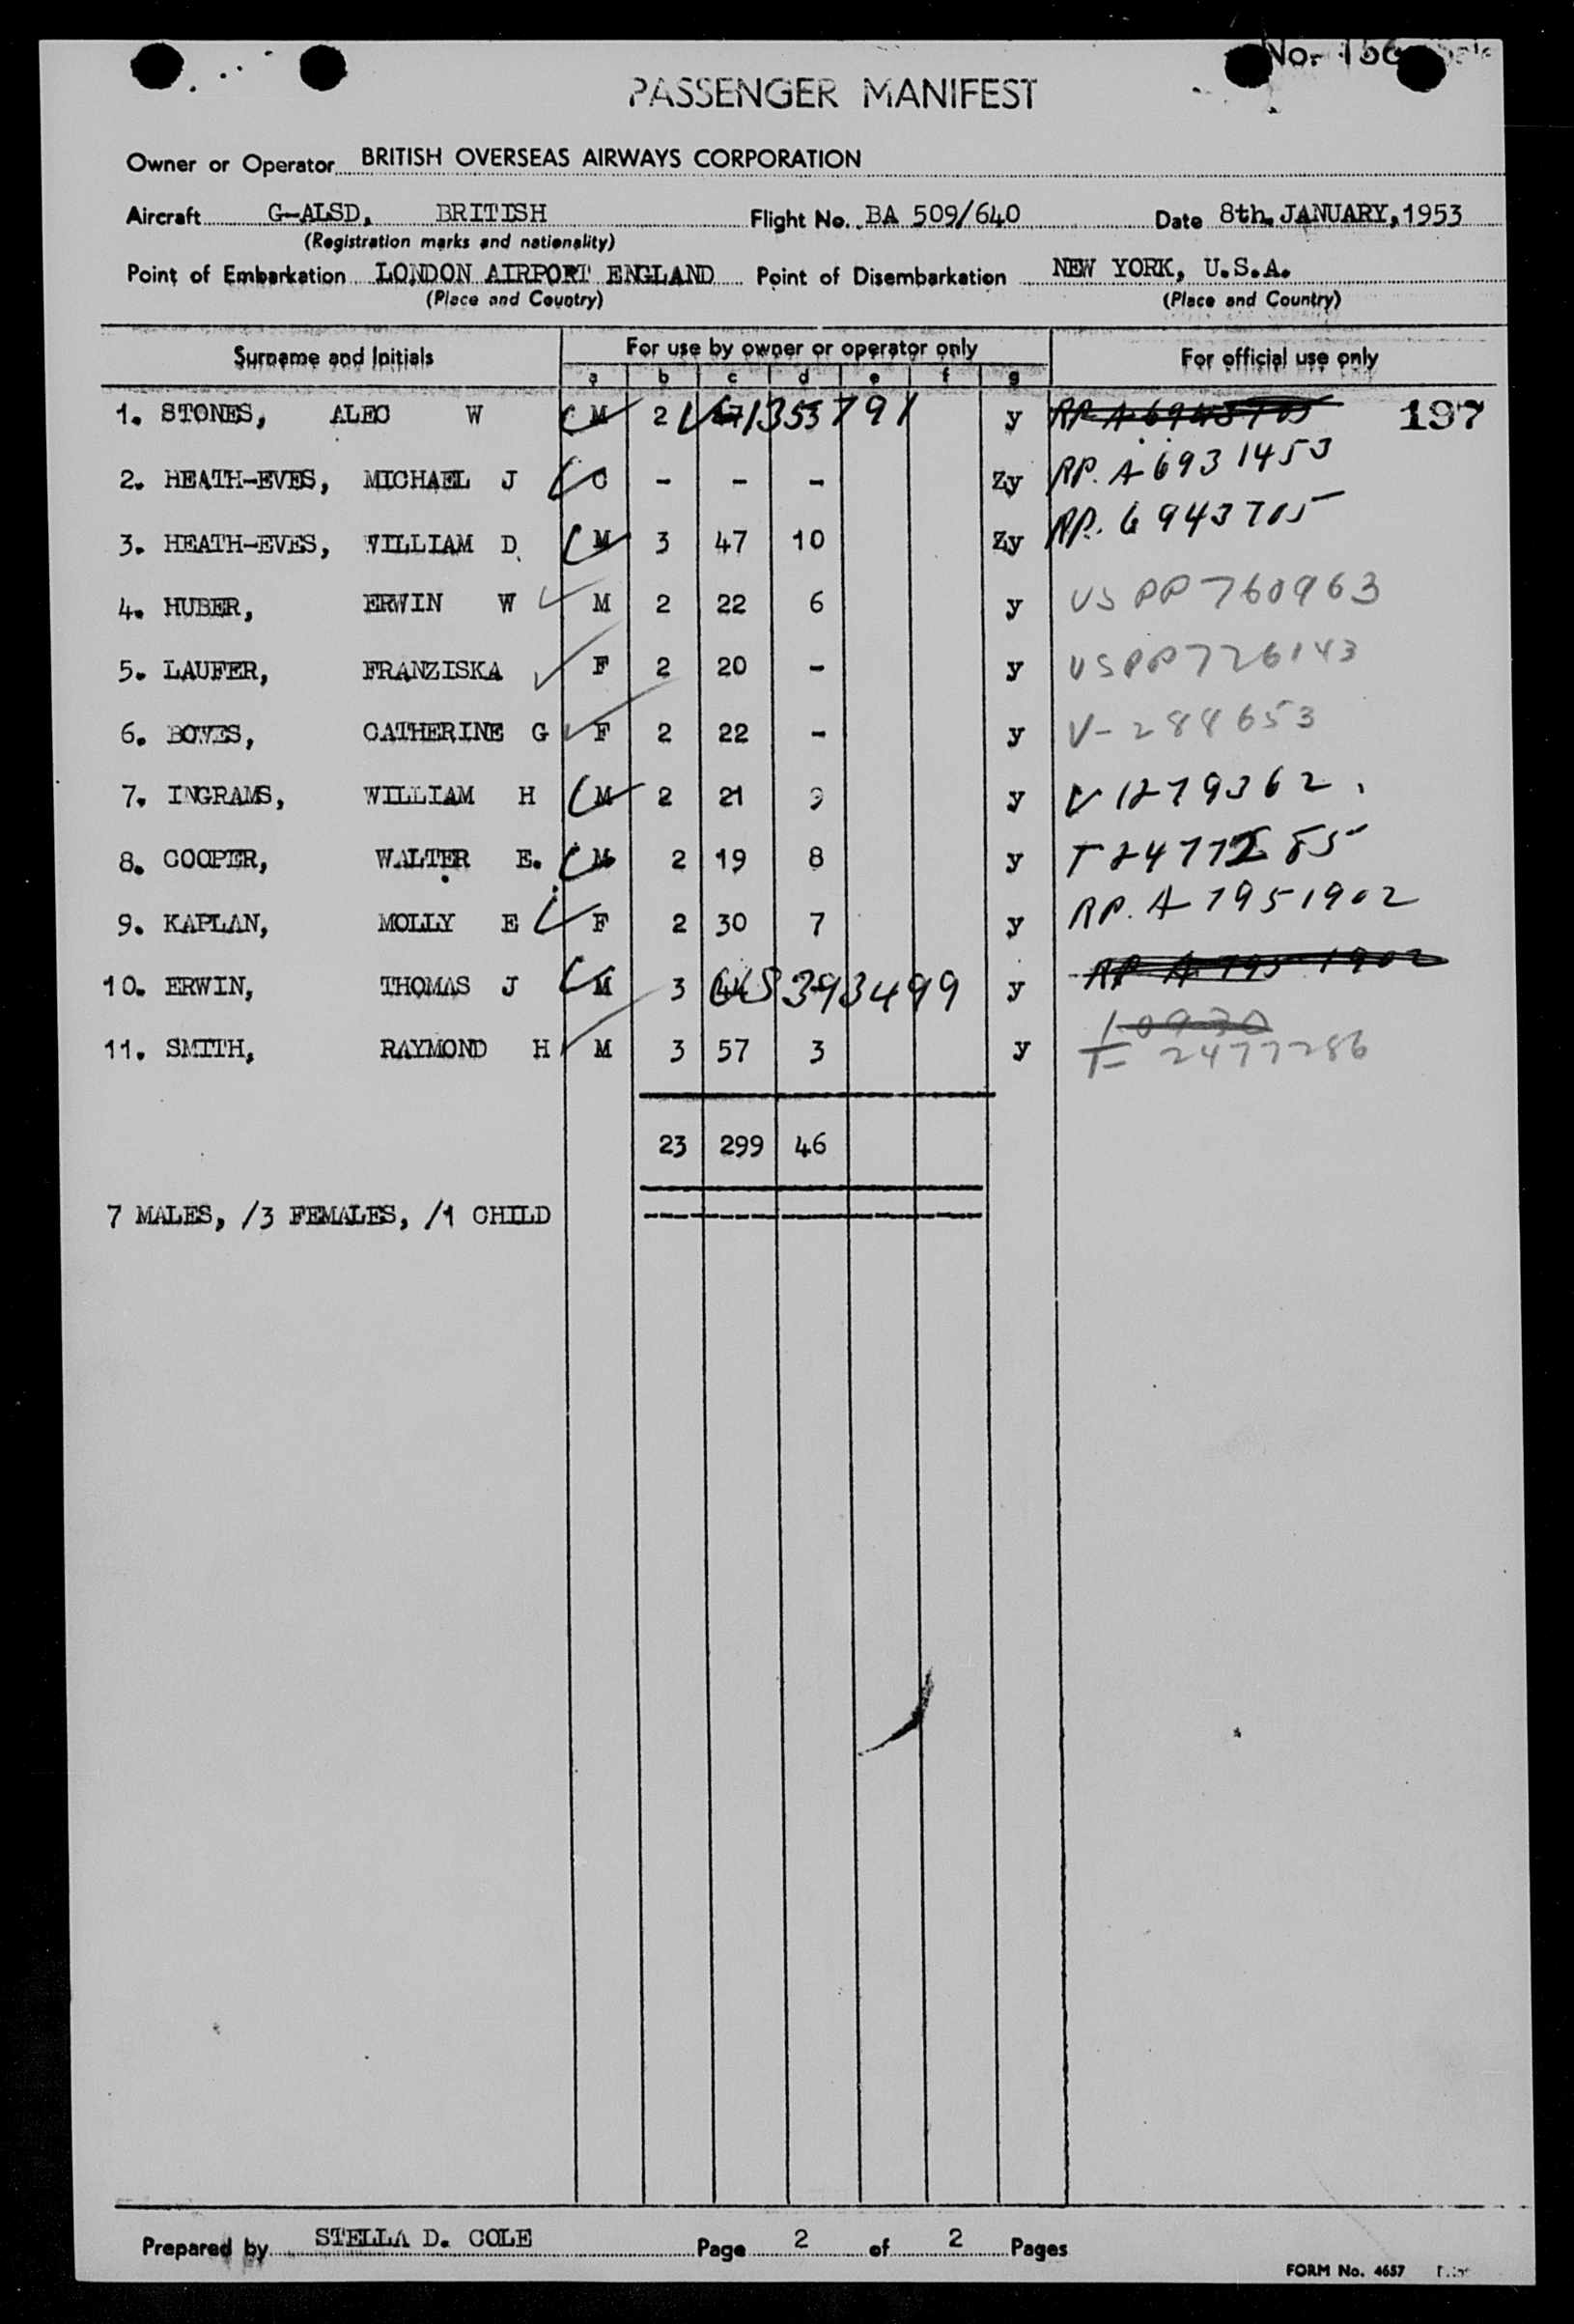 PASSENGER MANIFEST
Owner or Operator BRITISH OVERSEAS AIRWAYS CORPORATION
Aircraft G-ALSD, BRITISH Flight No. BA 509/640 Date 8th. JANUARY, 1953
(Registration marks and nationality)
Point of Embarkation LONDON AIRPORT ENGLAND Point of Disembarkation NEW YORK, U.S.A.
(Place and Country) (Place and Country)
Surname and Initials For use by owner or operator only For official use only
a b c d e f g
1. STONES, ALEC W M 2 y RP. A 6943705 197
2. HEATH-EVES, MICHAEL J C - - - Zy RP. A 6931453
3. HEATH-EVES, WILLIAM D. M 3 47 10 Zy RP. 6943705
4. HUBER, ERWIN W M 2 22 6 y US PP 760963
5. LAUFER, FRANZISKA F 2 20 - y US PP 726143
6. BOWES, CATHERINE G F 2 22 - y V-288653
7. INGRAMS, WILLIAM H M 2 21 9 y V 1279362.
8. COOPER, WALTER E. M 2 19 8 y
9. KAPLAN, MOLLY E F 2 30 7 y RP. A 7951902
10. ERWIN, THOMAS J M 3 393499 y RP A 7951902
10930
11. SMITH, RAYMOND H M 3 57 3 y T- 2477286
23 299 46
7 MALES, /3 FEMALES, /1 CHILD
Prepared by STELLA D. COLE Page 2 of 2 Pages
FORM No. 4657